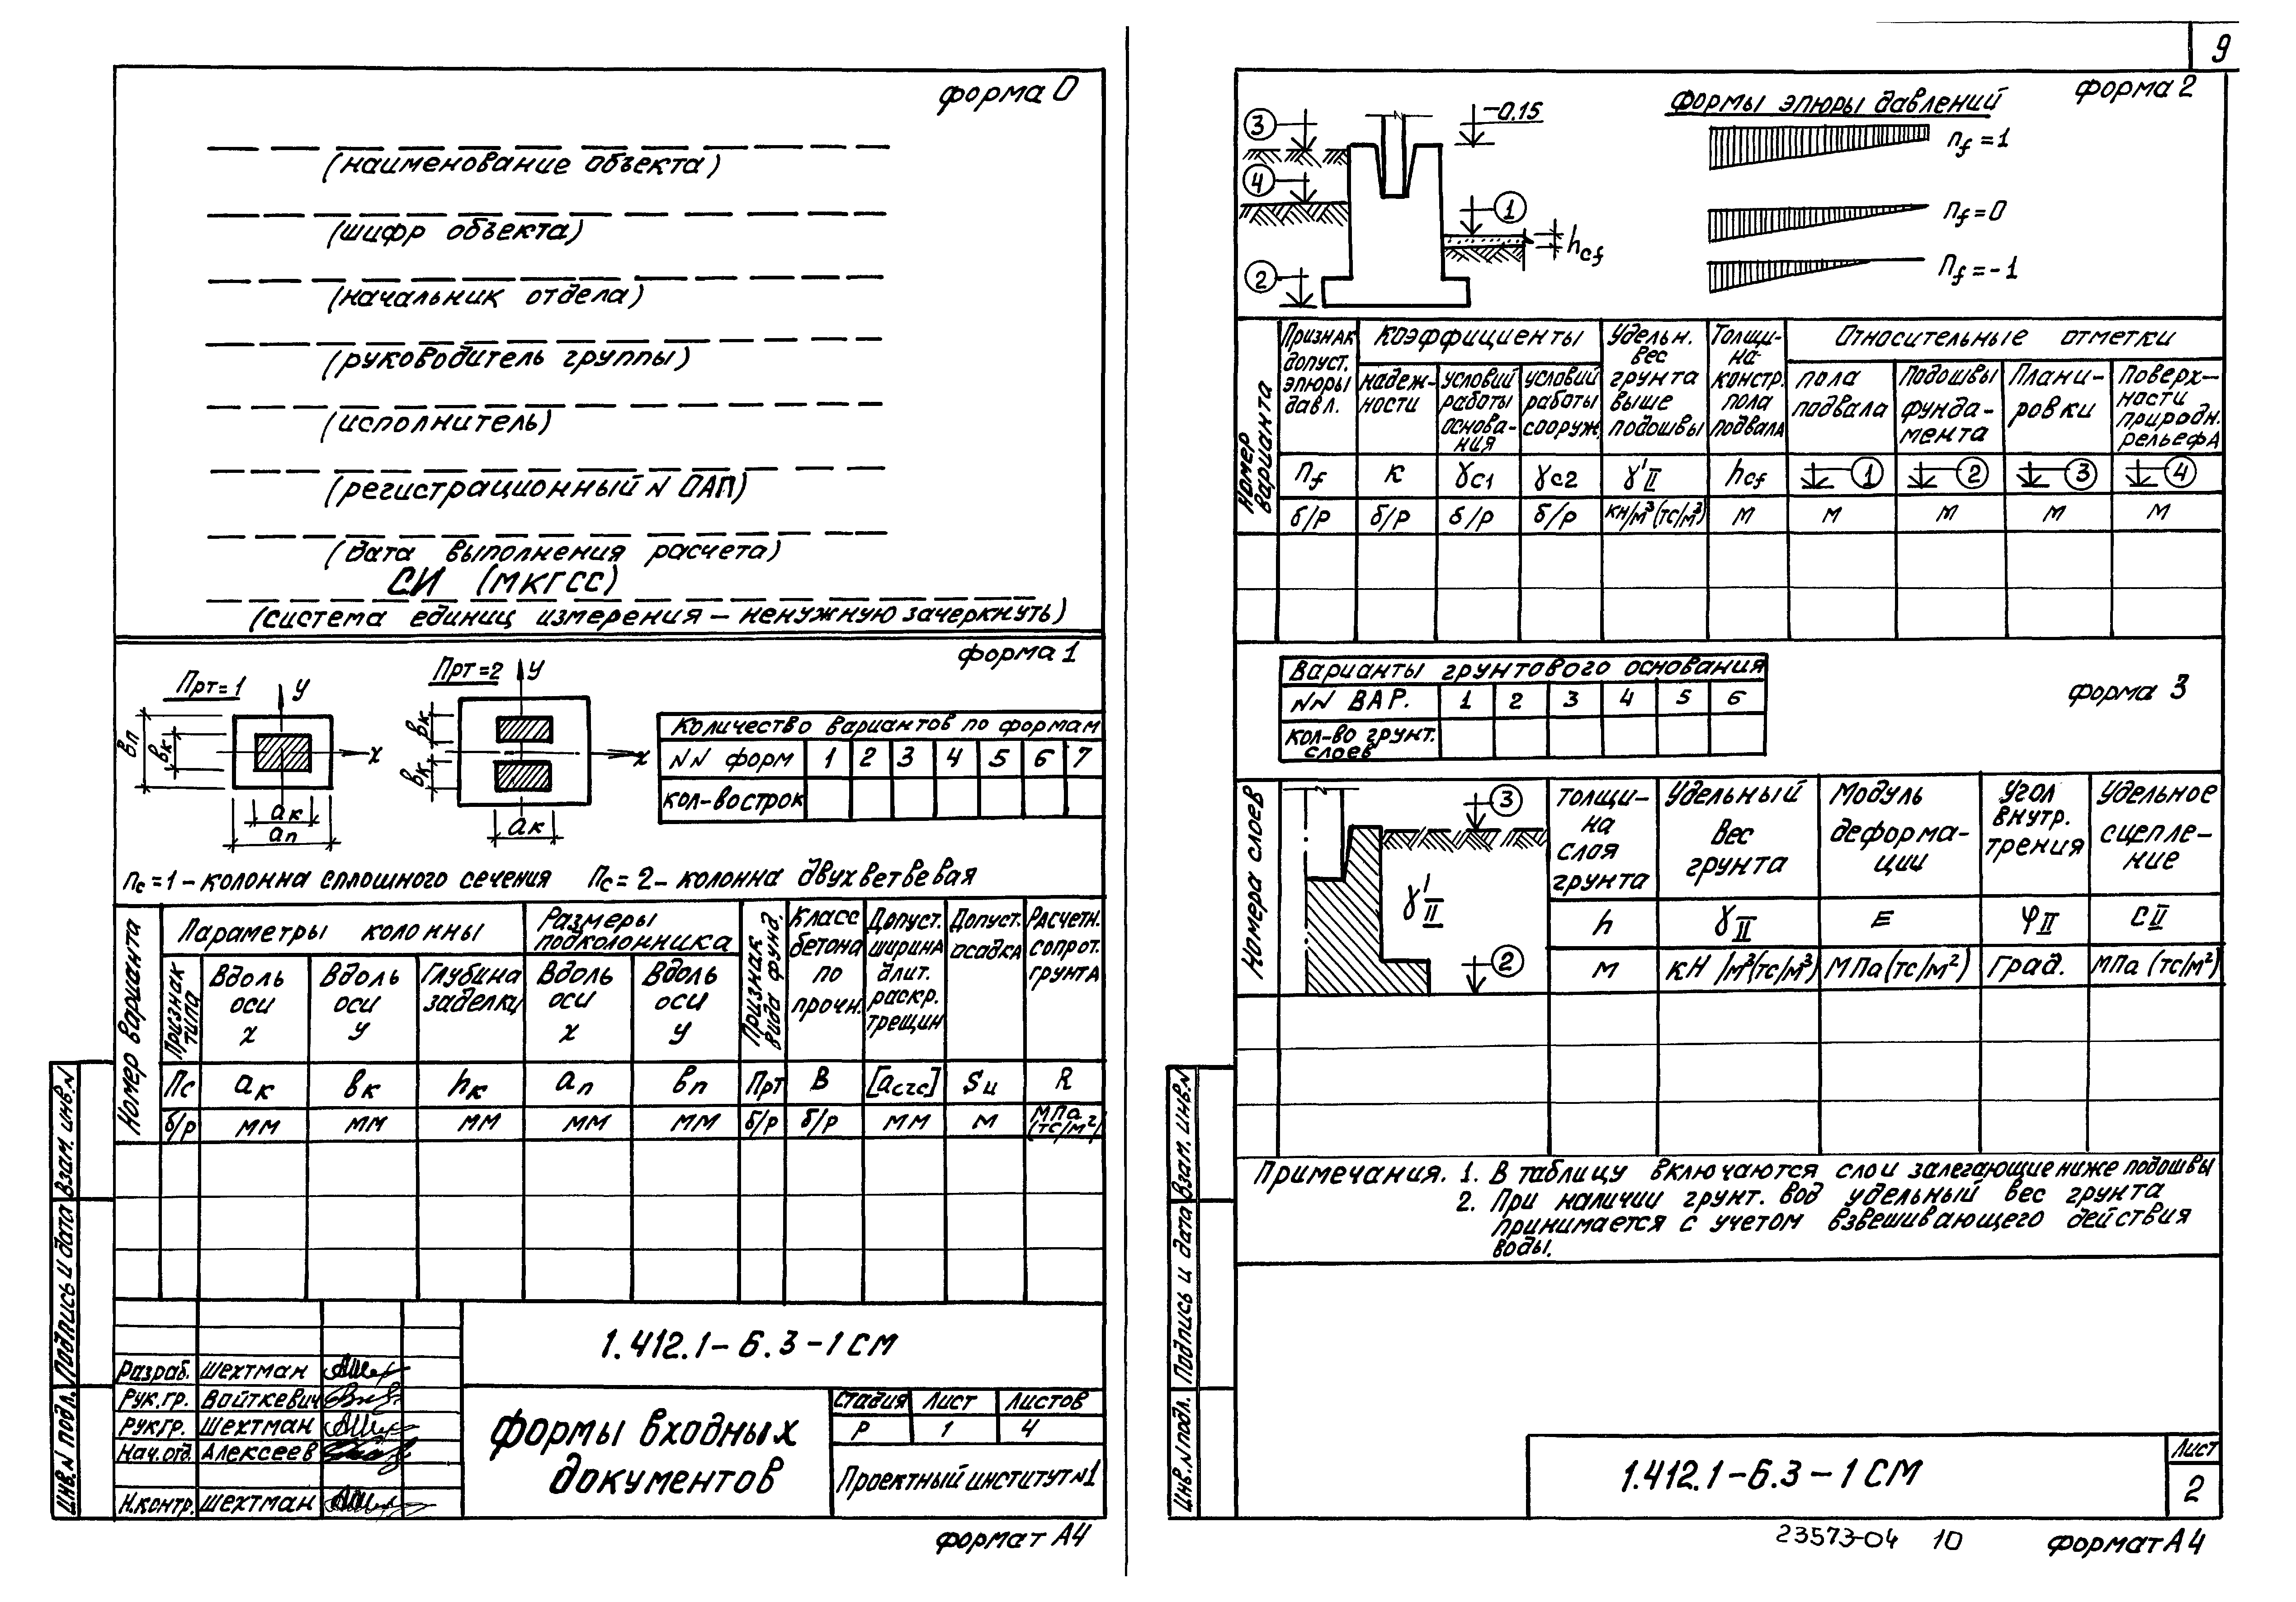 форма 0
(наименование объекта)
(шифр объекта)
(начальник отдела)
(руководитель группы)
(исполнитель)
(регистрационный N ОАП)
(дата выполнения расчета)
СИ (МКГСС)
(система единиц измерения – ненужную зачеркнуть)
форма 1
Прт=1
у
х
вп
вк
ак
ап
Прт=2
у
х
вк
вк
ак
Количество вариантов по формам
NN форм 1 2 3 4 5 6 7
кол-во строк
пс=1 – колонна сплошного сечения пс=2 – колонна двухветвевая
Номер варианта
Параметры колонны
Размеры подколонника
Признак вида фунд.
Класс бетона по прочн.
Допуст. ширина длит. раскр. трещин
Допуст. осадка
Расчетн. сопрот. грунта
Признак типа
Вдоль оси х
Вдоль оси у
Глубина заделки
Вдоль оси х
Вдоль оси у
Пс ак вк hк ап вп Прт В [acrc] Su R
б/р мм мм мм мм мм б/р б/р мм м МПа (тс/м²)
Взам. инв. N
Подпись и дата
Инв. N подл.
Разраб. Шехтман
Рук. гр. Войткевич
Рук. гр. Шехтман
Нач. отд. Алексеев
Н. контр. Шехтман
1.412.1-6.3-1СМ
Формы входных
документов
Стадия Лист Листов
Р 1 4
Проектный институт N1
формат А4
9
форма 2
3
-0.15
4
1
hcf
2
Формы эпюры давлений
nf=1
nf=0
nf=-1
Номер варианта
Признак допуст. эпюры давл.
Коэффициенты
Удельн. вес грунта выше подошвы
Толщина констр. пола подвала
Относительные отметки
надежности
условий работы основания
условий работы сооруж.
пола подвала
Подошвы фундамента
Планировки
Поверхности природн. рельефа
nf к γc1 γc2 γ'II hcf 1 2 3 4
б/р б/р б/р б/р кн/м³(тс/м³) м м м м м
Варианты грунтового основания
NN ВАР. 1 2 3 4 5 6
кол-во грунт. слоев
форма 3
Номера слоев
3
γ'II
2
Толщина слоя грунта
Удельный вес грунта
Модуль деформации
Угол внутр. трения
Удельное сцепление
h γII Е φII СII
м кН/м³(тс/м³) МПа(тс/м²) Град. МПа (тс/м²)
Примечания. 1. В таблицу включаются слои залегающие ниже подошвы
2. При наличии грунт. вод удельный вес грунта
принимается с учетом взвешивающего действия
воды.
Взам. инв. N
Подпись и дата
Инв. N подл.
1.412.1-6.3-1СМ
Лист
2
23573-04 10
формат А4